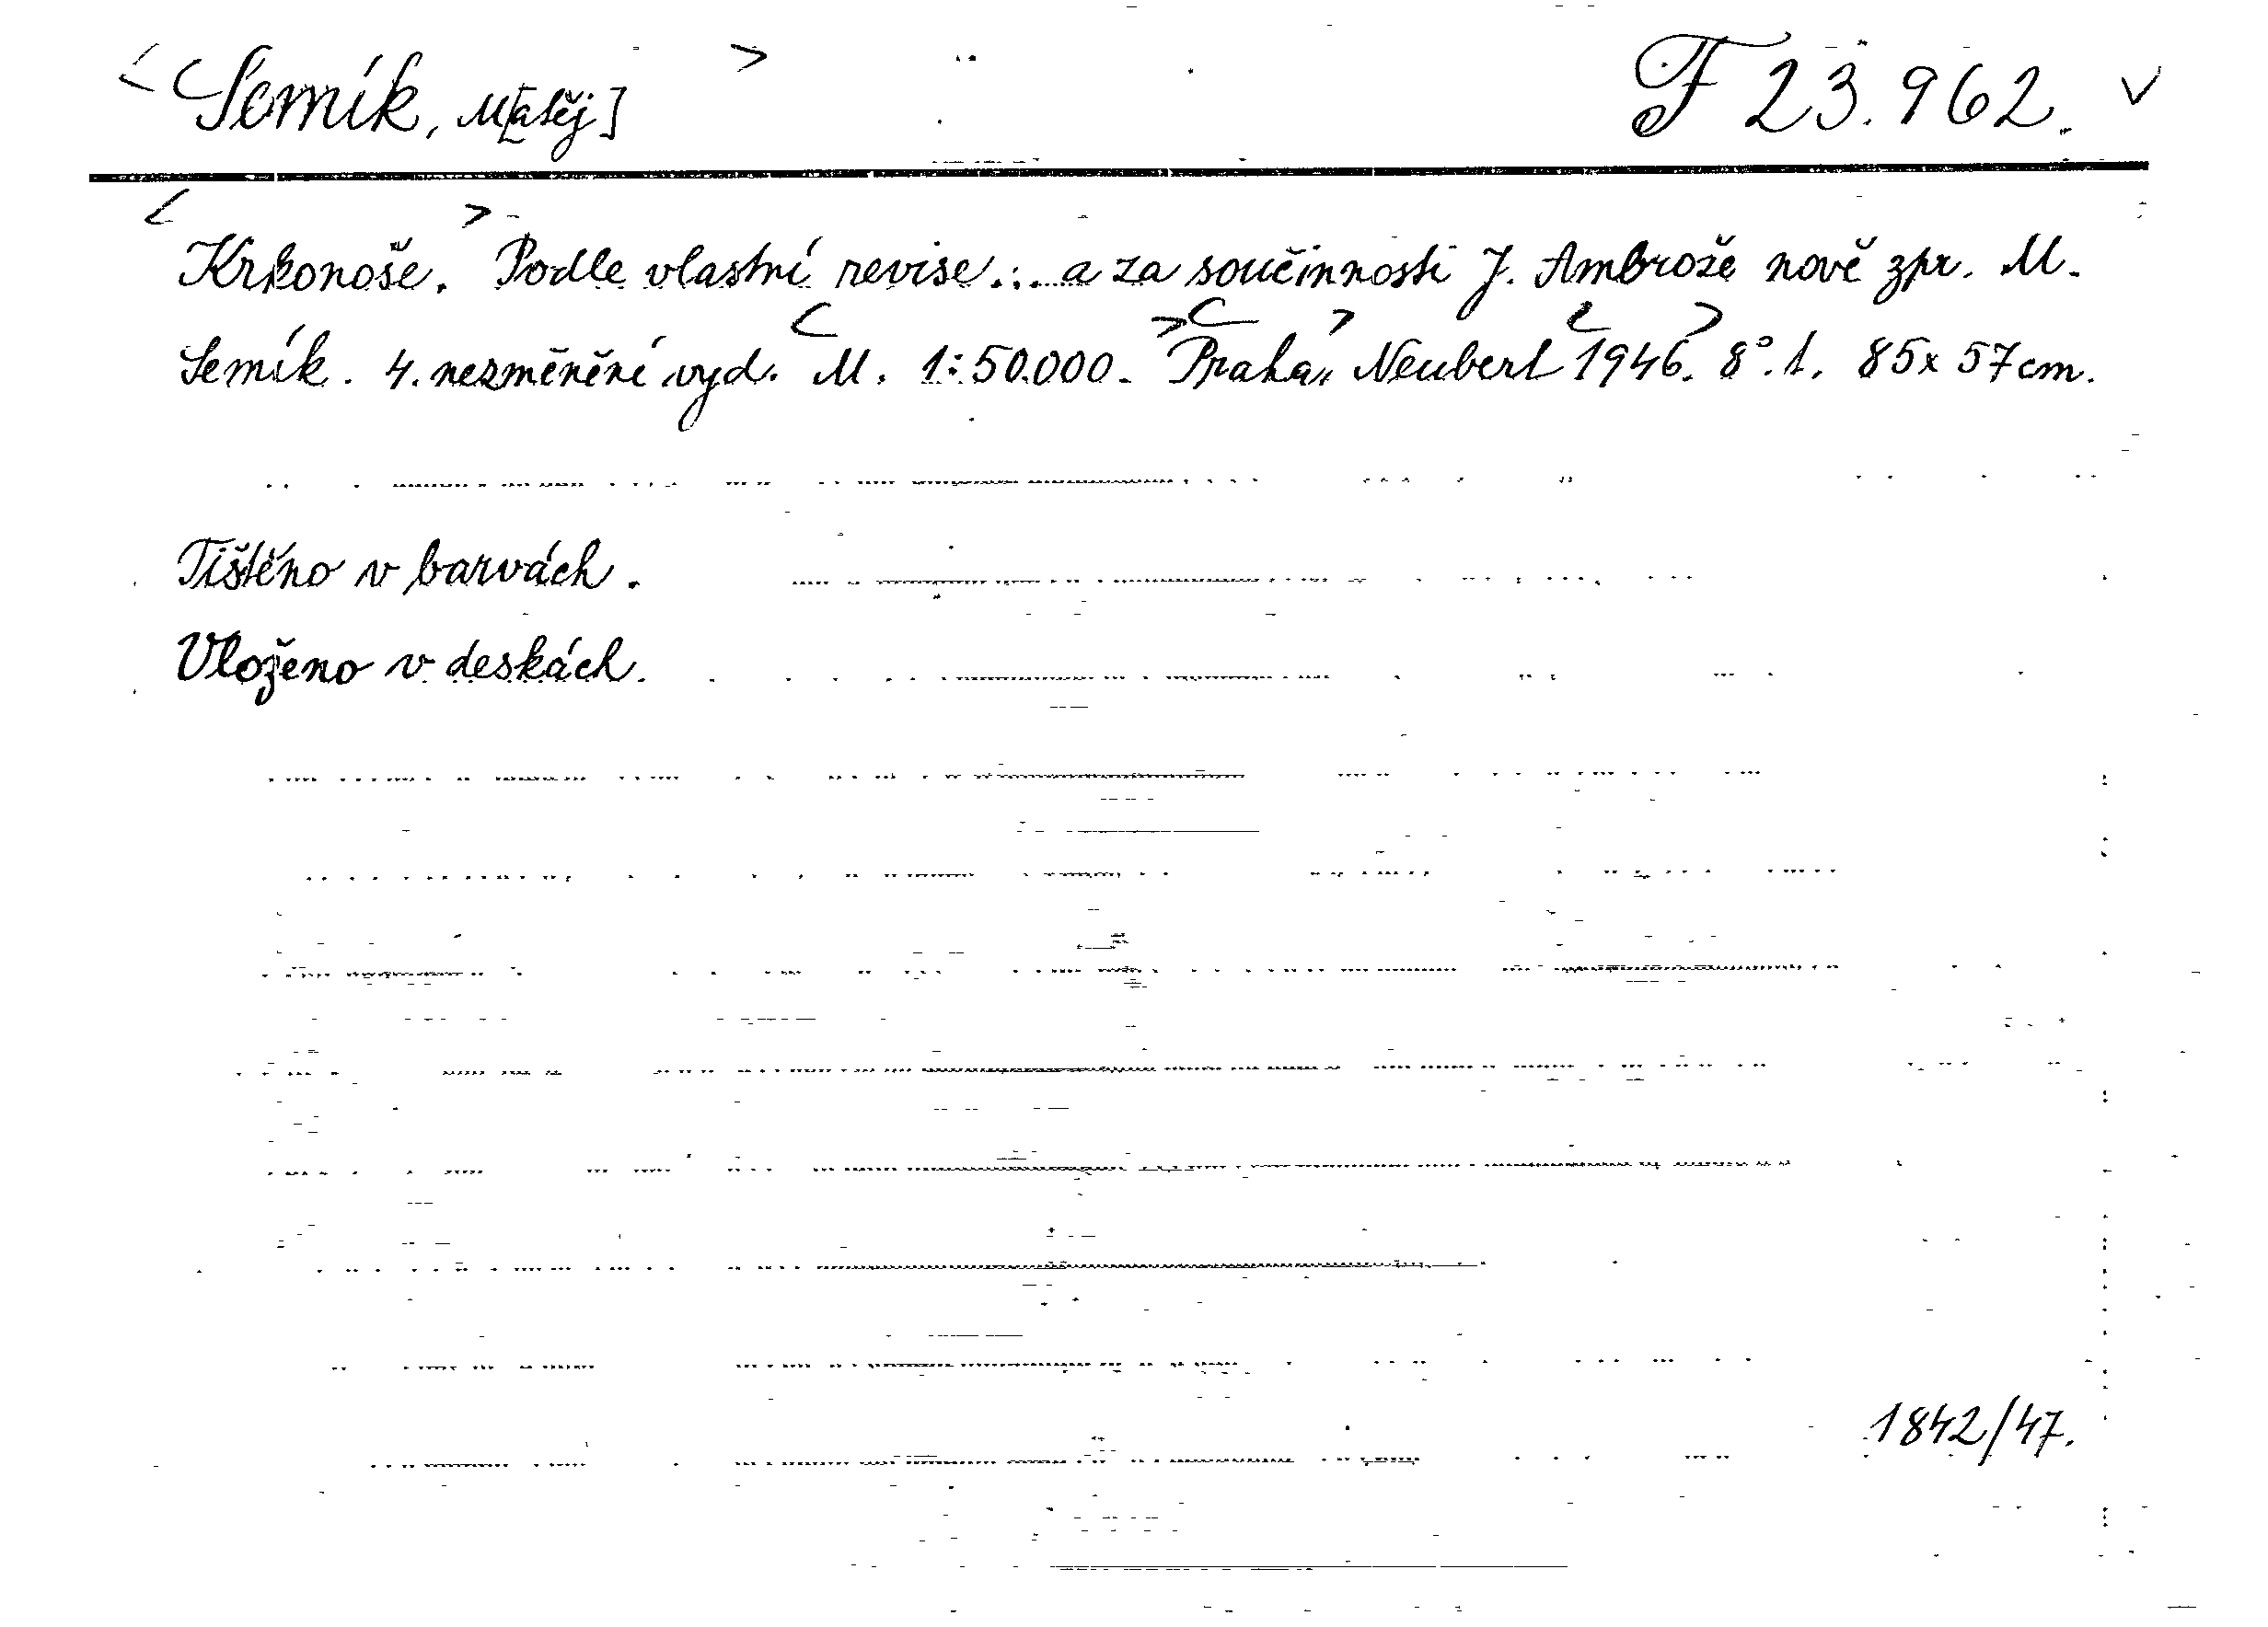 < Semík, M[atěj] > F 23.962. v
< Krkonoše. > Podle vlastní revise... a za součinnosti J. Ambrože nově zpr. M.
Semík. 4. nezměnění vyd. < M. 1:50.000. > < Praha, > Neubert < 1946. > 8°. 1. 85x57cm.
Tištěno v barvách.
Vloženo v deskách.
1842/47.